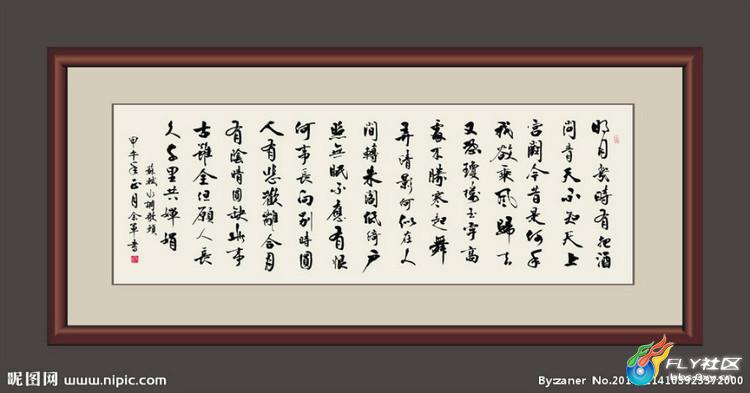 明月幾時有把酒
問青天不知天上
宮闕今昔是何年
我欲乘風歸去
又恐瓊樓玉宇高
處不勝寒起舞
弄清影何似在人
間轉朱閣低綺户
照無眠不應有恨
何事長向別時圓
人有悲歡離合月
有陰晴圓缺此事
古難全但願人長
久千里共嬋娟
蘇軾水調歌頭
甲午年正月余軍書
昵图网 www.nipic.com
FLY社区
By:zaner